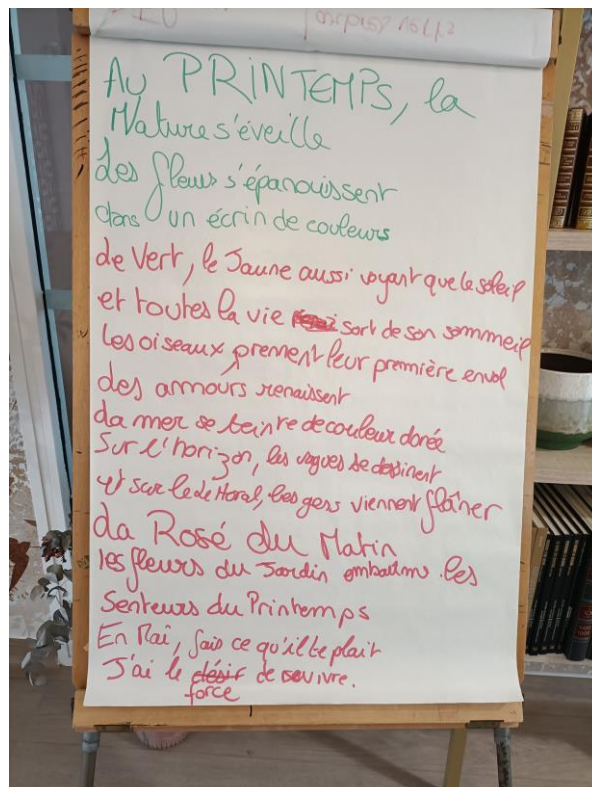 Au PRINTEMPS, la
Nature s'éveille
Les fleurs s'épanouissent
dans un écrin de couleurs
de Vert, le Jaune aussi voyant que le soleil
et toutes la vie sort de son sommeil
les oiseaux prennent leur première envol
des amours renaissent
La mer se teinte de couleur dorée
Sur l'horizon, les vagues se dessinent
et sur le littoral, les gens viennent flâner
La Rosé du Matin
les fleurs du Jardin embaume les
Senteurs du Printemps
En Maî, fais ce qu'il te plait
J'ai le désir de vivre.
force